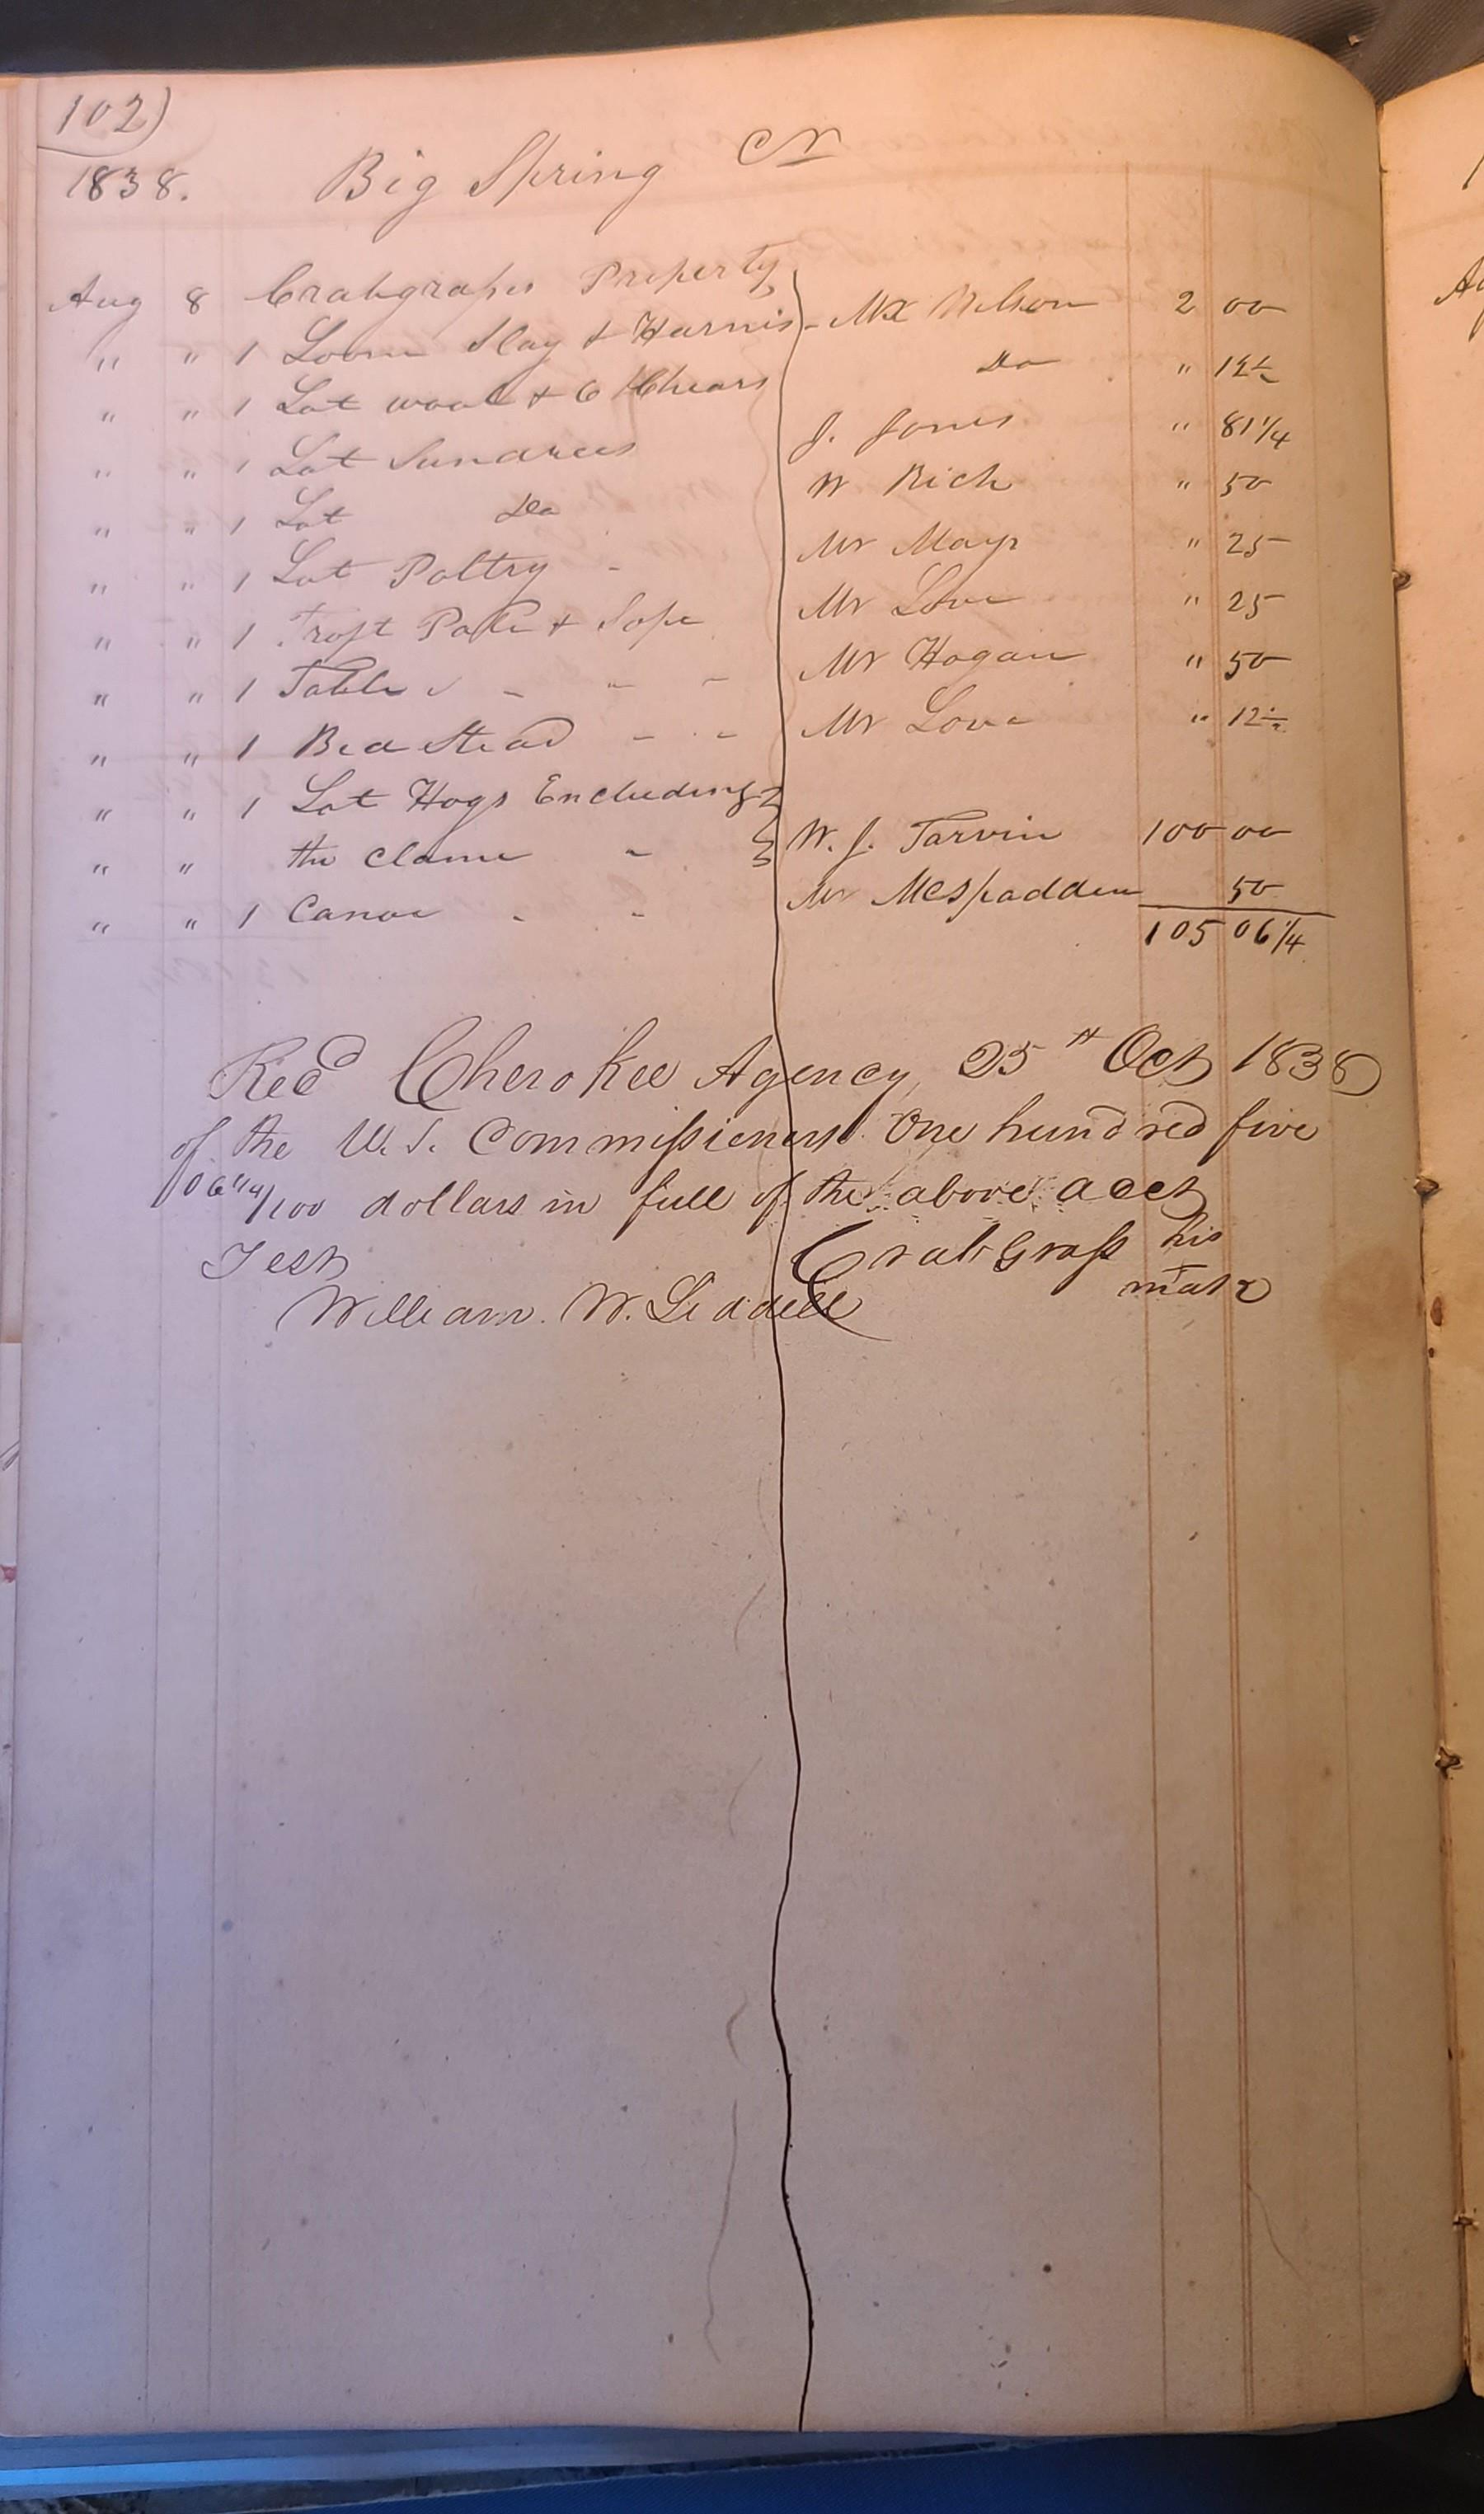 102)
1838. Big Spring Cr
Aug 8 Crabgrass Property
" " 1 Loom Slay & Harnis - Mr Nelson 2 00
" " 1 Lot wool & 6 Chears Do " 12½
" " 1 Lot Sundrees J. Jones " 81¼
" " 1 Lot Do W Rich " 50
" " 1 Lot Poltry - Mr Mayr " 25
" " 1 & Sope Mr Love " 25
" " 1 Table - " - Mr Hogan " 50
" " 1 Bed Stead - - Mr Love " 12½
" " 1 Lot Hogs Encludeing
" " the Clame - W. J. Tarvin 100 00
" " 1 Canoe - - Mr McSpadden 50
105 06¼
Recd Cherokee Agency 25th Oct 1838
of the U.S. Commissioners One hundred five
06¼/100 dollars in full of the above acct
Test Crab Grass his
mark
William. W. Liddell